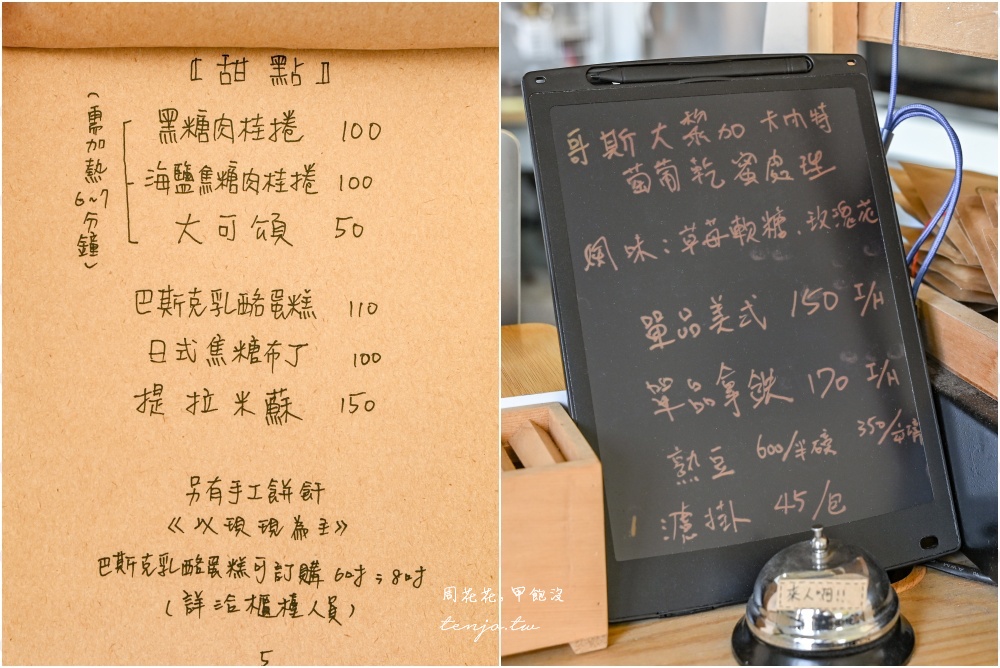 【甜點】
(需加熱6~7分鐘)
黑糖肉桂捲 100
海鹽焦糖肉桂捲 100
大可頌 50
巴斯克乳酪蛋糕 110
日式焦糖布丁 100
提拉米蘇 150
另有手工餅干
《以現現為主》
巴斯克乳酪蛋糕可訂購 6吋；8吋
(詳洽櫃檯人員)
5
哥斯大黎加 卡內特
葡萄乾蜜處理
風味：草莓軟糖、玫瑰花
單品美式 150 I/H
單品拿鉄 170 I/H
熟豆 600/半磅 350/
濾掛 45/包
來人啊!!
周花花,甲飽沒
tenjo.tw